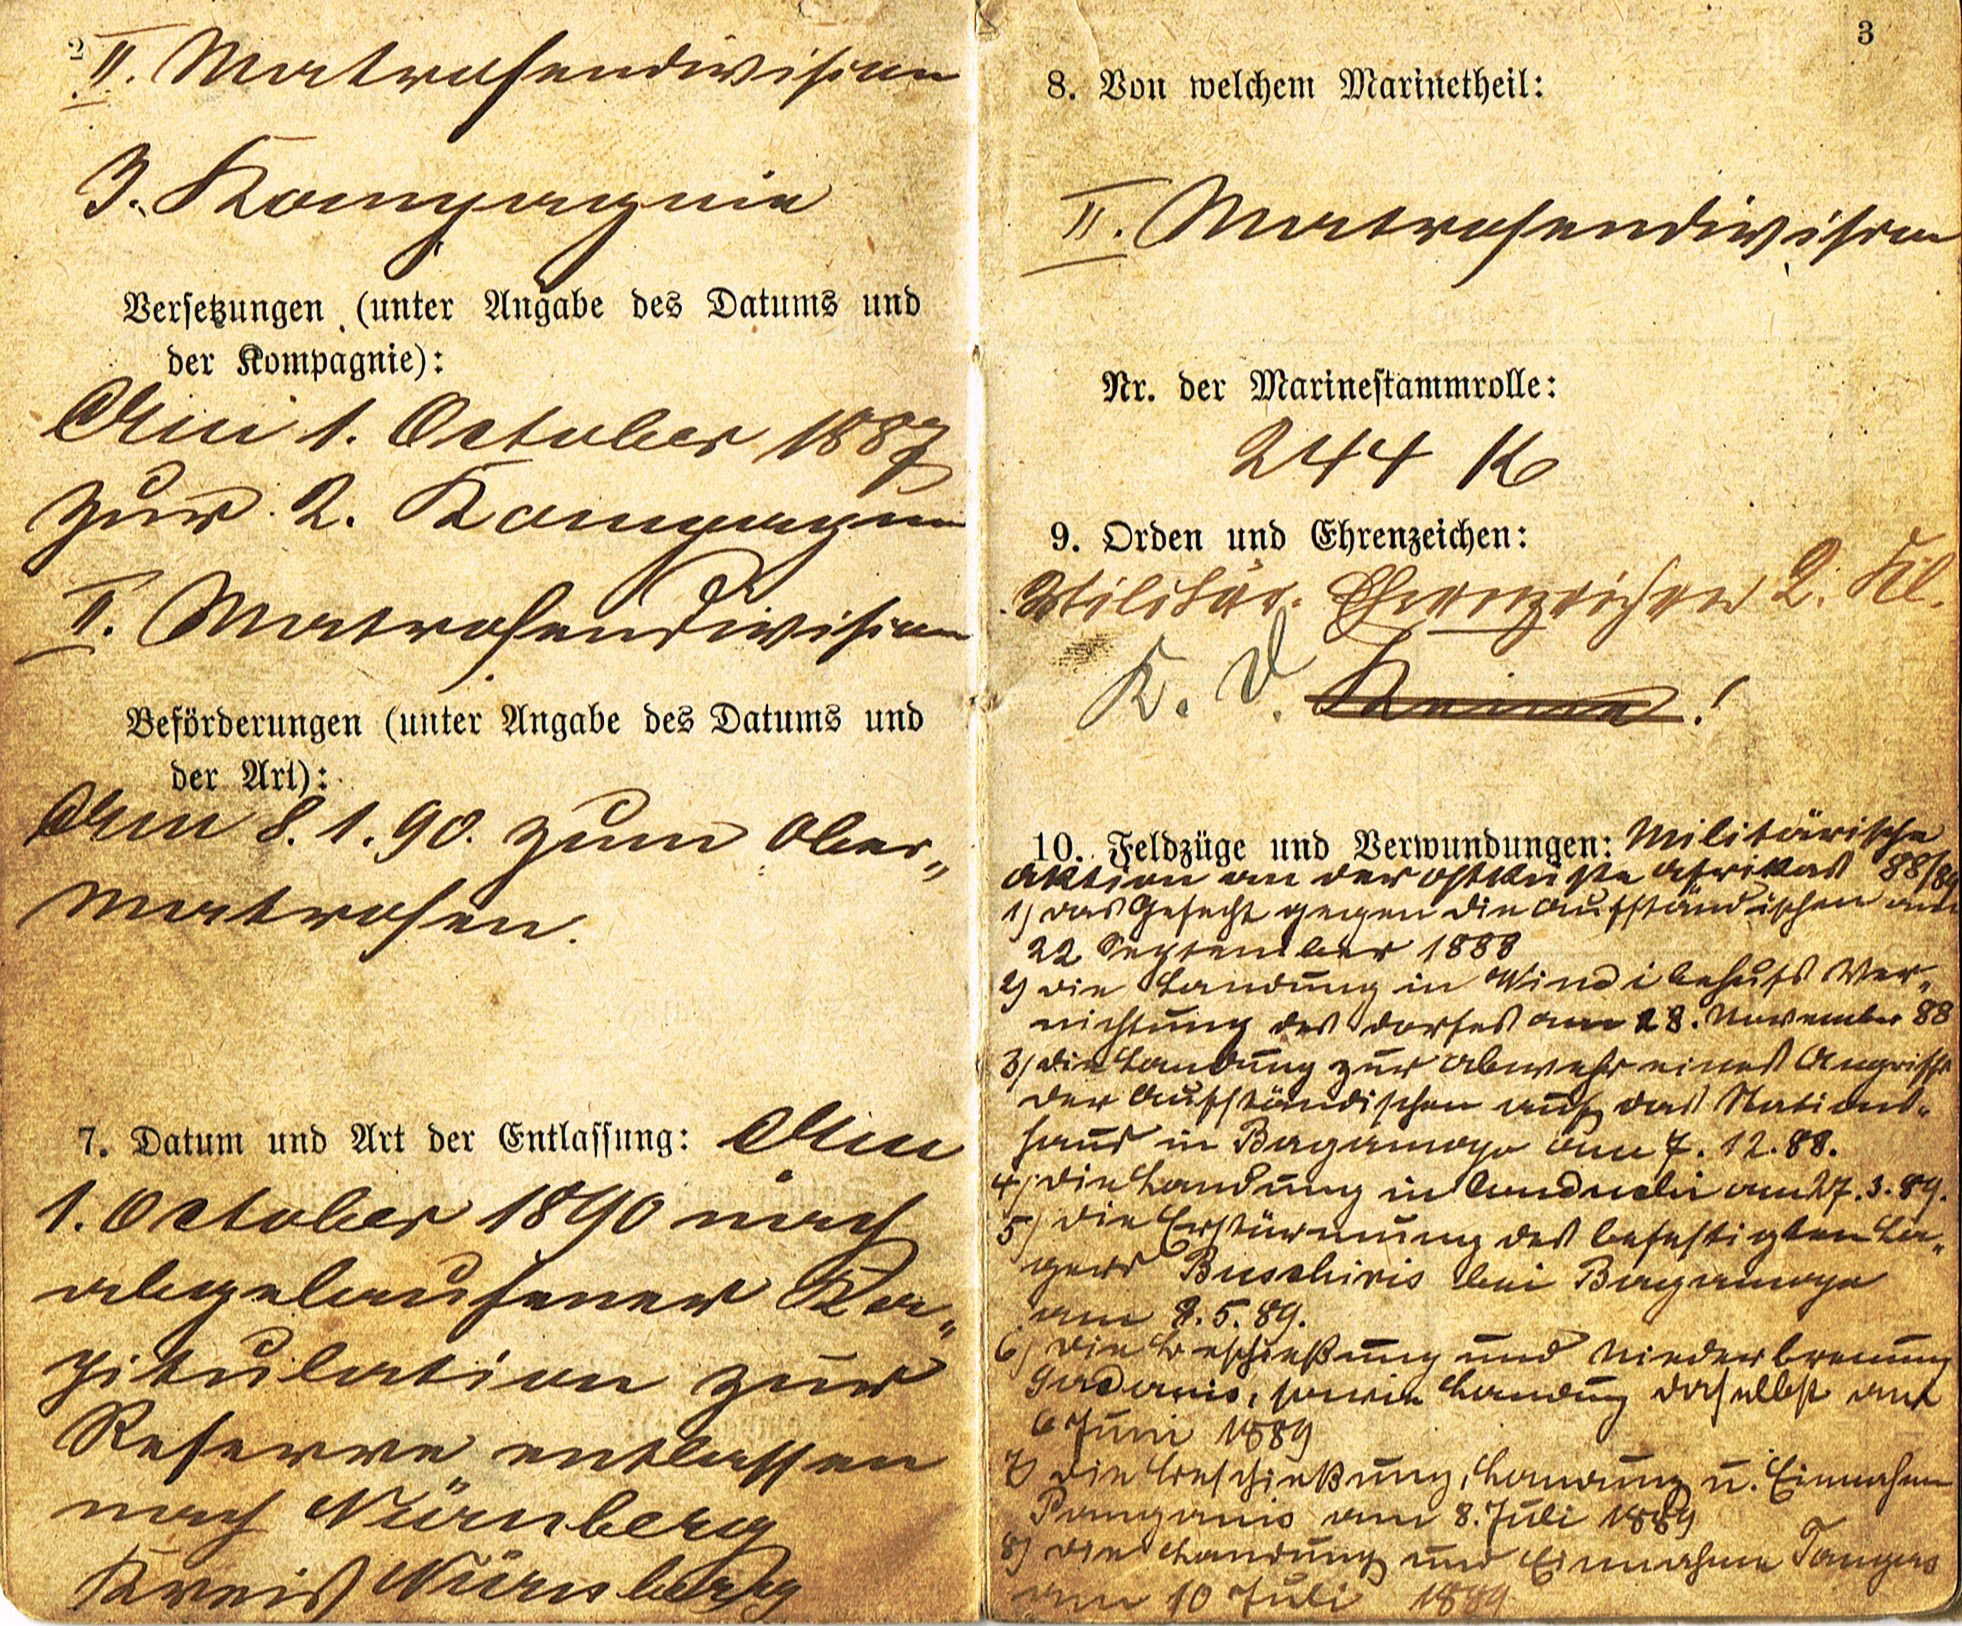 2
II. Matrosendivision
3. Kompagnie
Versetzungen (unter Angabe des Datums und
der Kompagnie):
Am 1. October 1887
zur 2. Kompagnie
II. Matrosendivision
Beförderungen (unter Angabe des Datums und
der Art):
Am 8.1.90. zum Ober„
matrosen.
7. Datum und Art der Entlassung: Am
1. October 1890 nach
abgelaufener Ka„
pitulation zur
Reserve entlassen
nach Nürnberg
Kreis Nürnberg
3
8. Von welchem Marinetheil:
II. Matrosendivision
Nr. der Marinestammrolle:
244 K
9. Orden und Ehrenzeichen:
Militär. Ehrenzeichen 2. Kl.
K. D. Keine!
10. Feldzüge und Verwundungen: Militärische
Aktion an der Ostküste Afrikas 88/89
1) das Gefecht gegen die Aufständischen am
22 September 1888
2) die Landung in Windi behufs Ver„
nichtung des Dorfes am 28. November 88
3) die Landung zur Abwehr eines Angriffs
der Aufständischen auf das Stations„
haus in Bagamoyo am 7. 12. 88.
4) die Landung in Conduchi am 27. 3. 89.
5) die Erstürmung des befestigten La„
gers Buschiris bei Bagamoyo
am 8. 5. 89.
6) die Beschießung und Niederbrennung
Sadanis, sowie Landung daselbst am
6 Juni 1889
7) die Beschießung, Landung u. Einnahme
Panganis am 8. Juli 1889
8) die Landung und Einnahme Tangas
am 10 Juli 1889